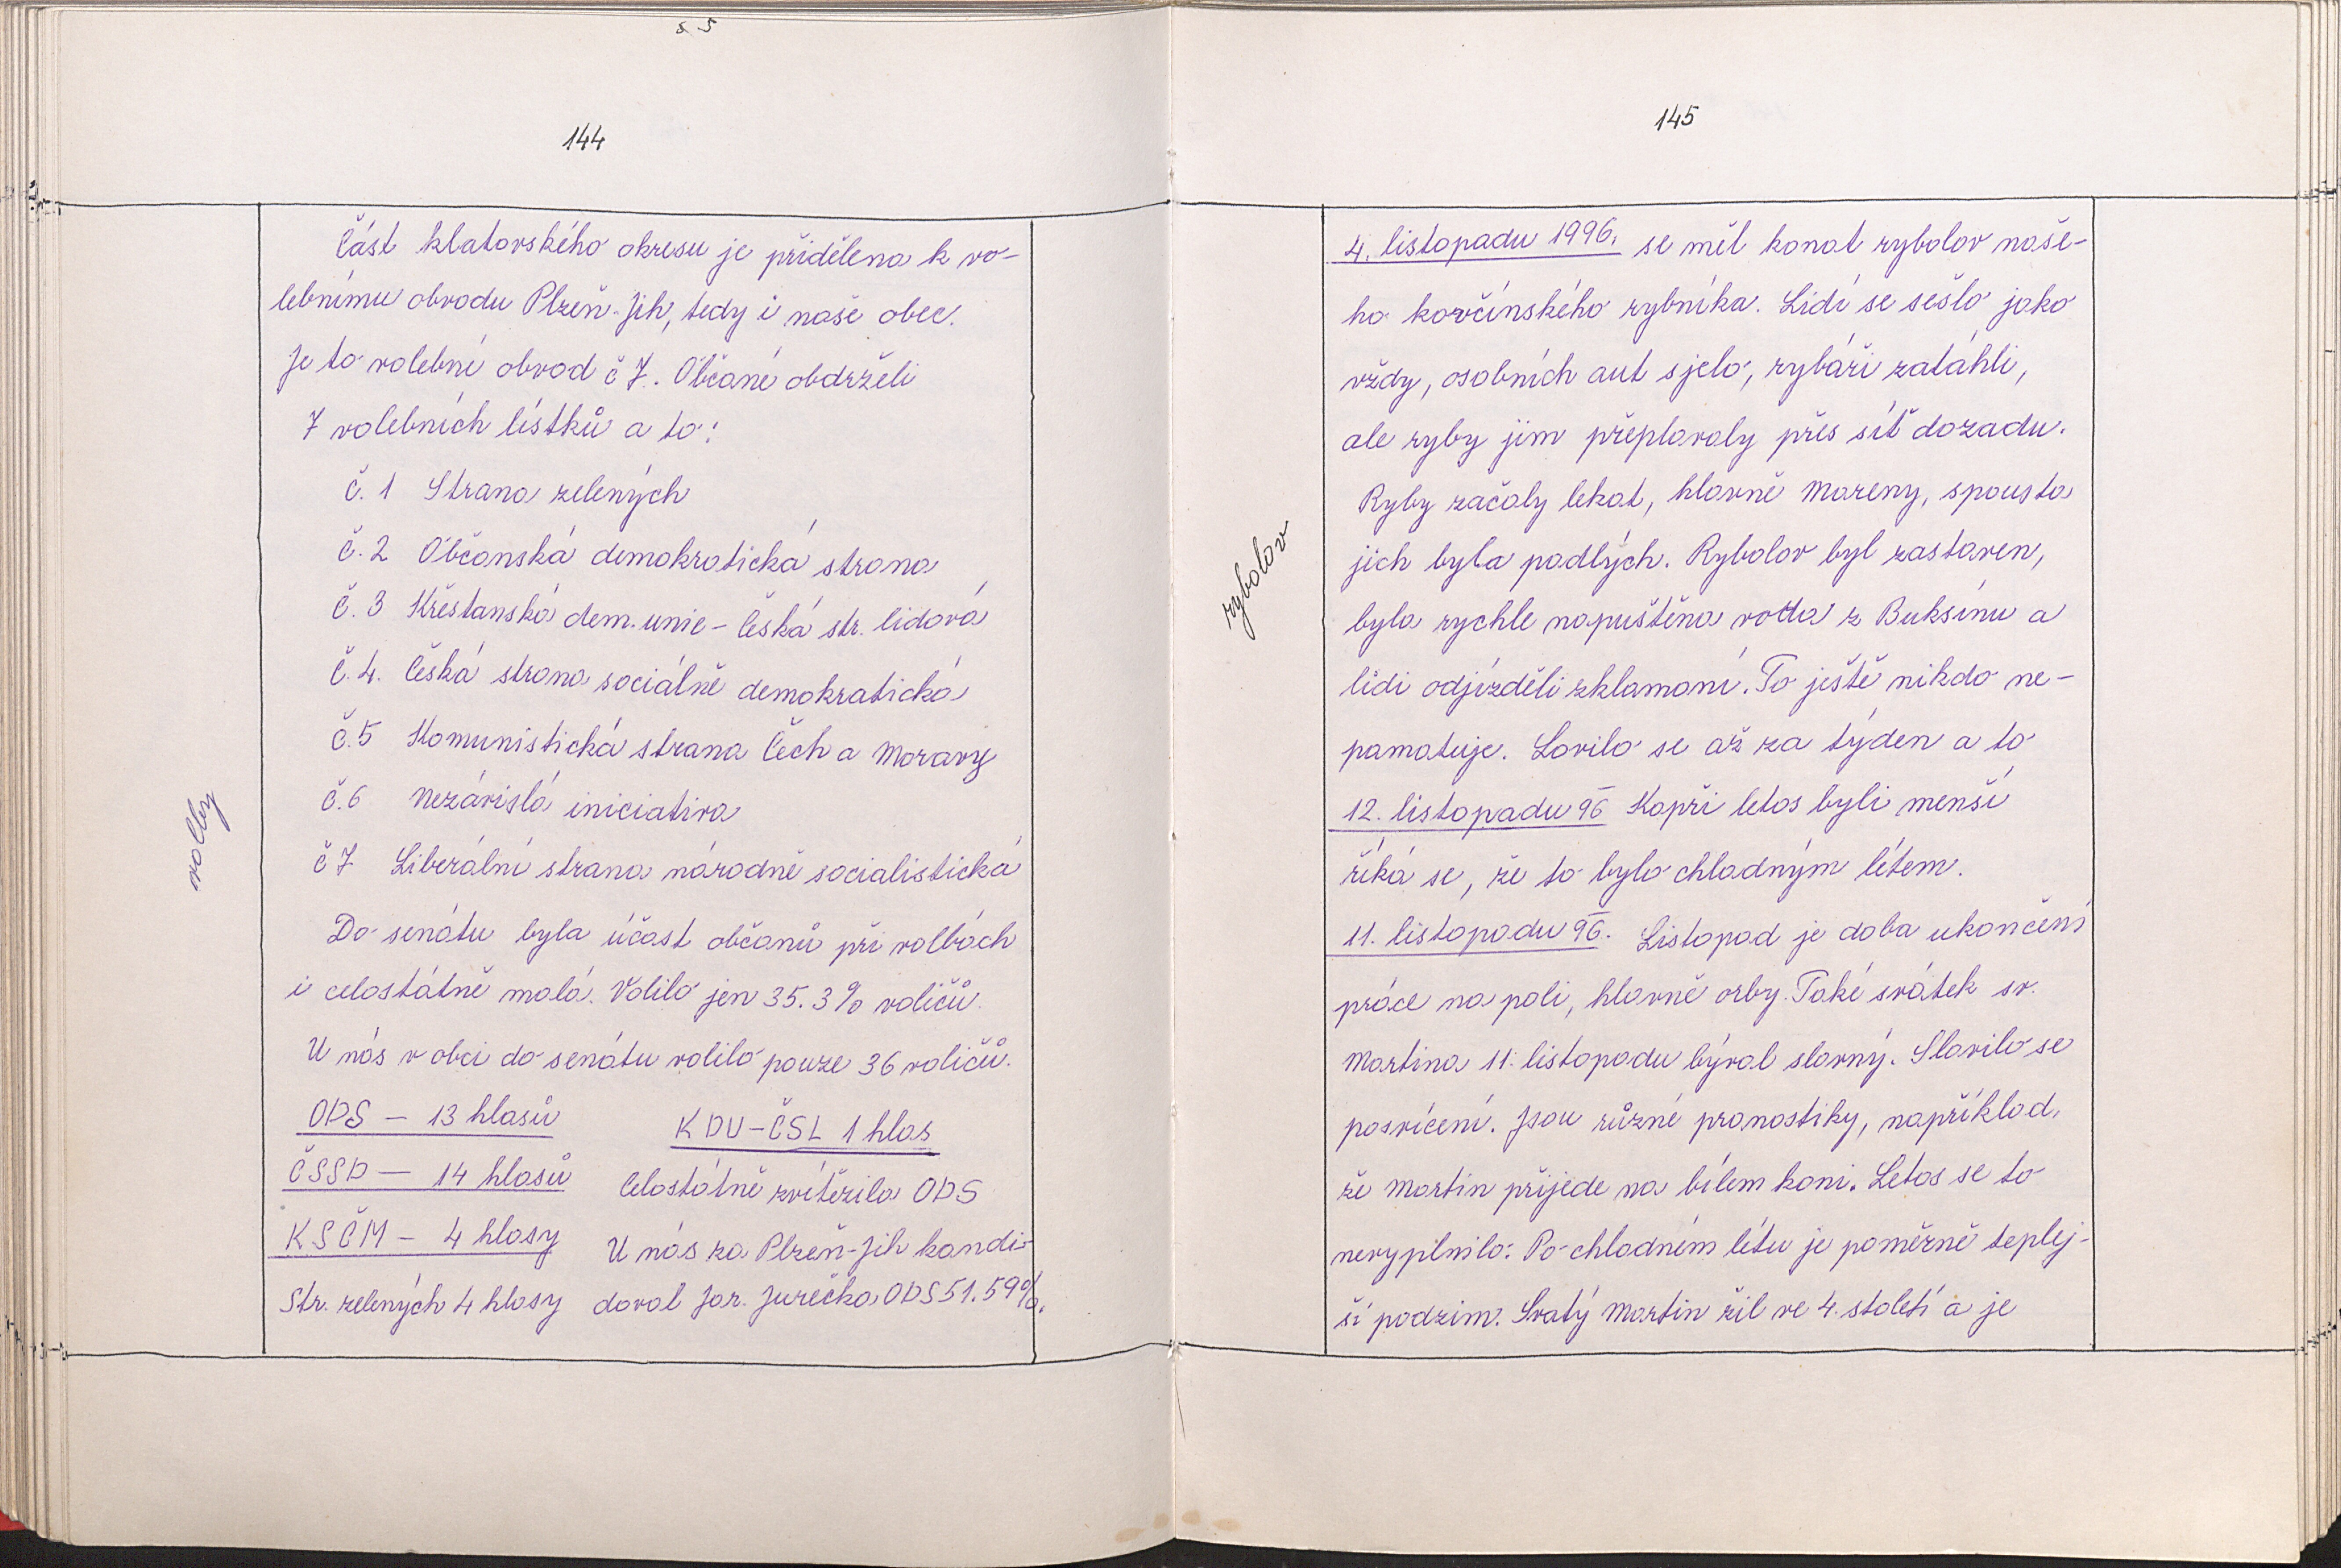 144
Část klatovského okresu je přidělena k vo-
lebnímu obvodu Plzeň-Jih, tedy i naše obec.
Je to volební obvod č 7. Občané obdrželi
7 volebních lístků a to:
č. 1 Strana zelených
č. 2 Občanská demokratická strana
č. 3 Křesťanská dem. unie - Česká str. lidová
č. 4. Česká strana sociálně demokratická
č. 5 Komunistická strana Čech a Moravy
č. 6 Nezávislá iniciativa
č 7 Liberální strana národně socialistická
volby
Do senátu byla účast občanů při volbách
i celostátně malá. Volilo jen 35.3% voličů.
U nás v obci do senátu volilo pouze 36 voličů.
ODS - 13 hlasů KDU-ČSL 1 hlas
ČSSD - 14 hlasů Celostátně zvítězila ODS
KSČM - 4 hlasy U nás za Plzeň-Jih kandi-
Str. zelených 4 hlasy doval Jar. Jurečka ODS 51.59%.
145
4. listopadu 1996. se měl konat rybolov naše-
ho kovčínského rybníka. Lidí se sešlo jako
vždy, osobních aut sjelo, rybáři zatáhli,
ale ryby jim přeplavaly přes síť dozadu.
Ryby začaly lekat, hlavně mareny, spousta
jich byla padlých. Rybolov byl zastaven,
rybolov
byla rychle napuštěna voda z Buksínu a
lidi odjížděli zklamaní. To ještě nikdo ne-
pamatuje. Lovilo se až za týden a to
12. listopadu 96 Kapři letos byli menší
říká se, že to bylo chladným létem.
11. listopadu 96. Listopad je doba ukončení
práce na poli, hlavně orby. Také svátek sv.
Martina 11. listopadu býval slavný. Slavilo se
posvícení. Jsou různé pranostiky, například,
že Martin přijede na bílem koni. Letos se to
nevyplnilo. Po chladném létu je poměrně teplej-
ší podzim. Svatý Martin žil ve 4. století a je